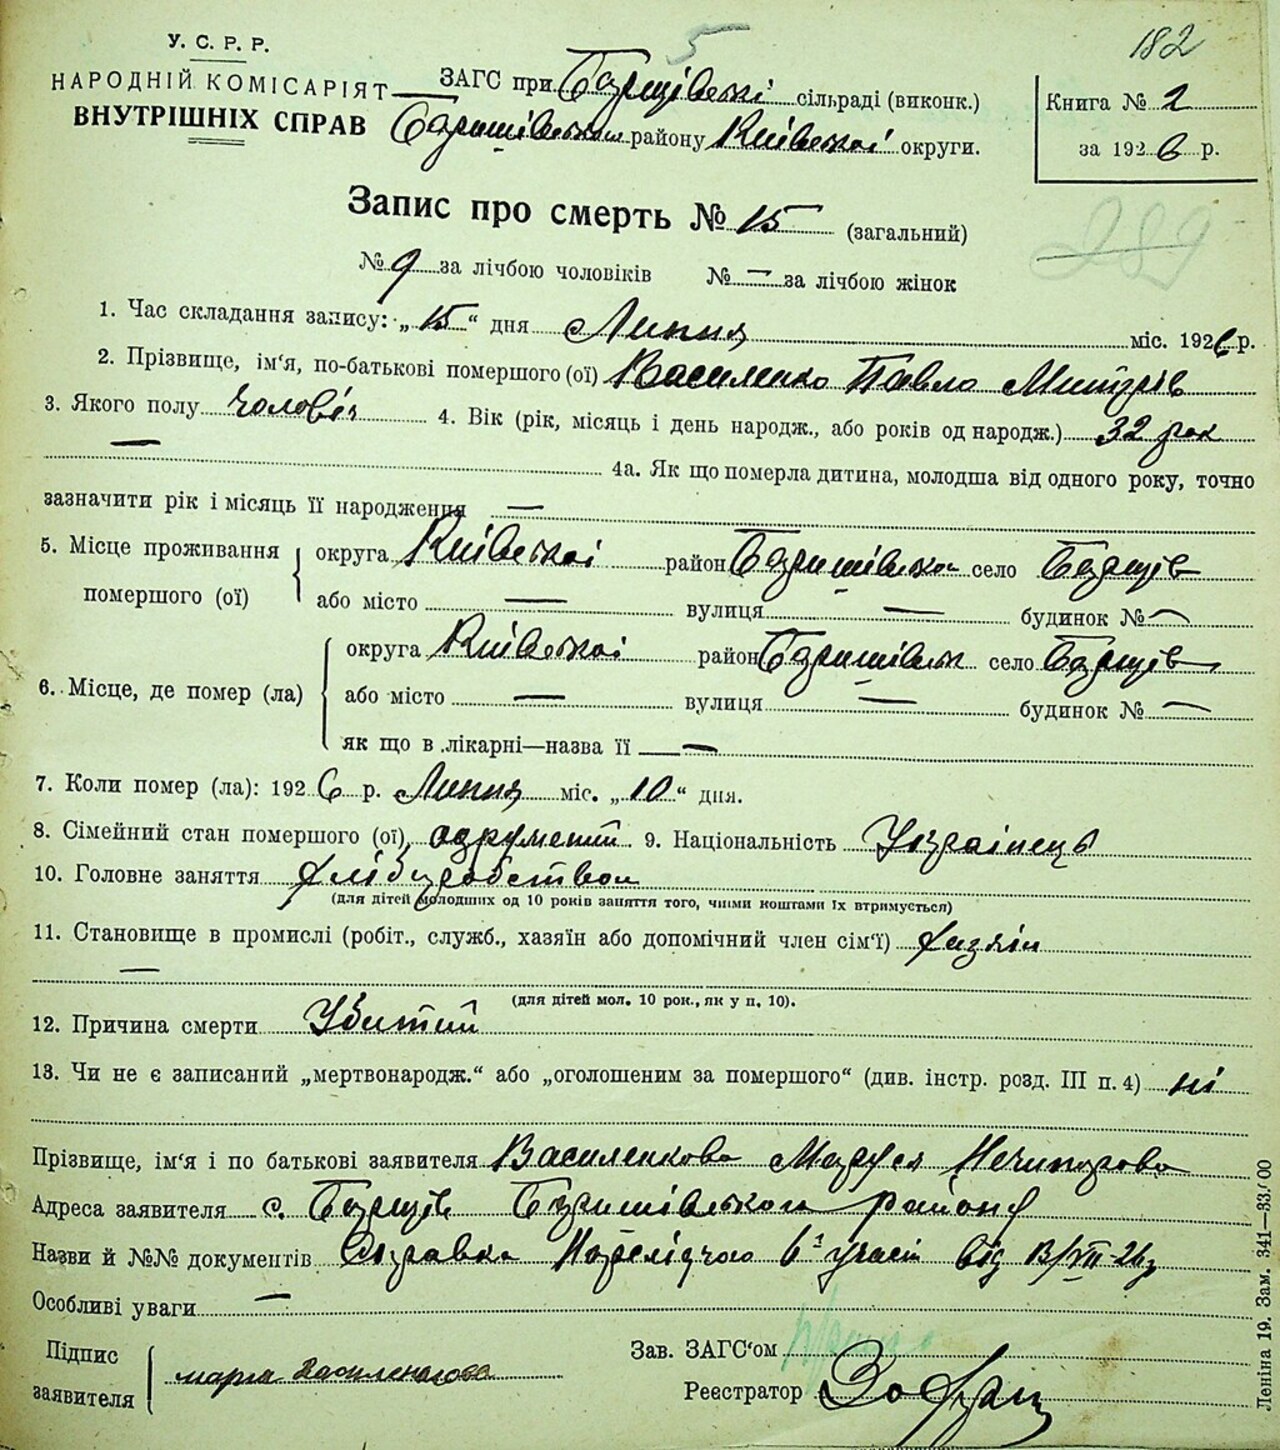 5
182
У. С. Р. Р.
НАРОДНІЙ КОМІСАРІЯТ
ВНУТРІШНІХ СПРАВ
ЗАГС при Борщівській сільраді (виконк.)
Баришівського району Київської округи.
Книга № 2
за 1926 р.
Запис про смерть № 15 (загальний)
289
№ 9 за лічбою чоловіків № — за лічбою жінок
1. Час складання запису: „15“ дня Липня міс. 1926 р.
2. Прізвище, ім'я, по-батькові помершого (ої) Василенко Павло Митрів
3. Якого полу чоловіч 4. Вік (рік, місяць і день народж., або років од народж.) 32 рок
— 4а. Як що померла дитина, молодша від одного року, точно
зазначити рік і місяць її народження —
5. Місце проживання помершого (ої) округа Київської район Баришівськ село Борщів
або місто — вулиця — будинок № —
6. Місце, де помер (ла) округа Київської район Баришівськ село Борщів
або місто — вулиця — будинок № —
як що в лікарні—назва її —
7. Коли помер (ла): 1926 р. Липня міс. „10“ дня.
8. Сімейний стан помершого (ої) одружений 9. Національність Українець
10. Головне заняття хлібороб­ством
(для дітей молодших од 10 років заняття того, чиїми коштами їх втримується)
11. Становище в промислі (робіт., служб., хазяїн або допомічний член сім'ї) хазяїн
—
(для дітей мол. 10 рок., як у п. 10).
12. Причина смерти Убитий
13. Чи не є записаний „мертвонародж.“ або „оголошеним за помершого“ (див. інстр. розд. III п. 4) ні
Прізвище, ім'я і по батькові заявителя Василенкова Маруся Нечипорова
Адреса заявителя с. Борщів Баришівського району
Назви й №№ документів Справка Нарслідчого 6 участ від 13/VII-26 р
Особливі уваги —
Підпис заявителя мария Василенкова
Зав. ЗАГС'ом
Реєстратор
Леніна 19. Зам. 341—33.000